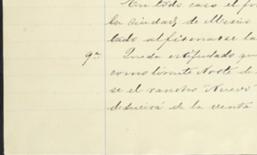 En todo caso el
la ciudad de Mexico
tado al firmarse la
9ª Queda estipulado que
como limite Norte
se el rancho Nuevo
deducirá de la venta